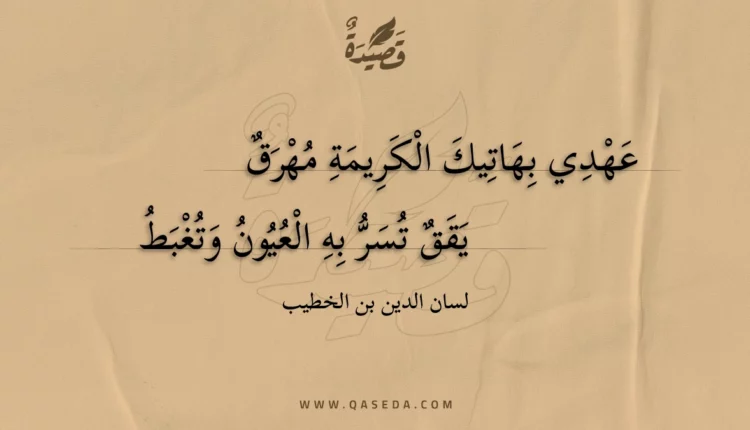 قَصِيدَةٌ
عَهْدِي بِهَاتِيكَ الْكَرِيمَةِ مُهْرَقٌ
يَقَقٌ تُسَرُّ بِهِ الْعُيُونُ وَتُغْبَطُ
لسان الدين بن الخطيب
WWW.QASEDA.COM